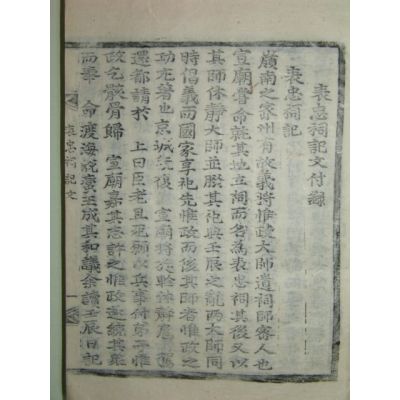 表忠祠記文付錄
表忠祠記
嶺南之密州有故義將惟政大師遺祠師密人也
宣廟嘗命就其地立祠而名爲表忠祠其後又以
其師休靜大師並腏其祀與壬辰之龍西大師同
時倡義而國家享祀先惟政而後其師者惟政之
功尤著也京城旣復 宣廟將
還都請於 上曰臣老且死願以兵事付弟子惟
政乞骸骨歸 宣廟嘉其志許之惟政遂統其衆
而承 命渡海說賊王成其和議余讀壬辰日記
表忠祠記文 一